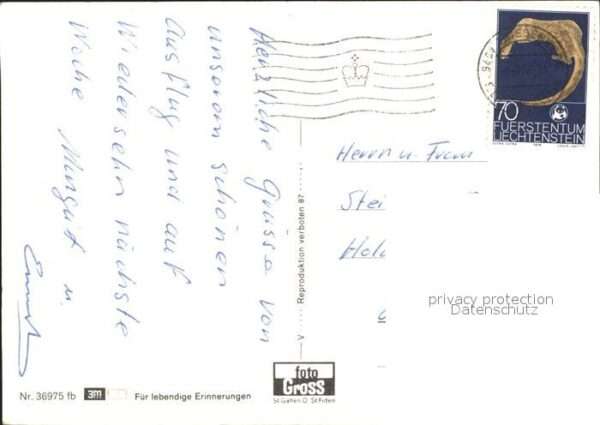 Herzliche Grüsse von
unserem schönen
Ausflug und auf
Wiedersehn nächste
Woche Margrit u.
Ernst
Reproduktion verboten 87
V
70
FUERSTENTUM
LIECHTENSTEIN
Herrn u. Frau
Stei
Hel
privacy protection
Datenschutz
foto
Gross
St.Gallen O. St.Fiden
Nr. 36975 fb
3m
Für lebendige Erinnerungen